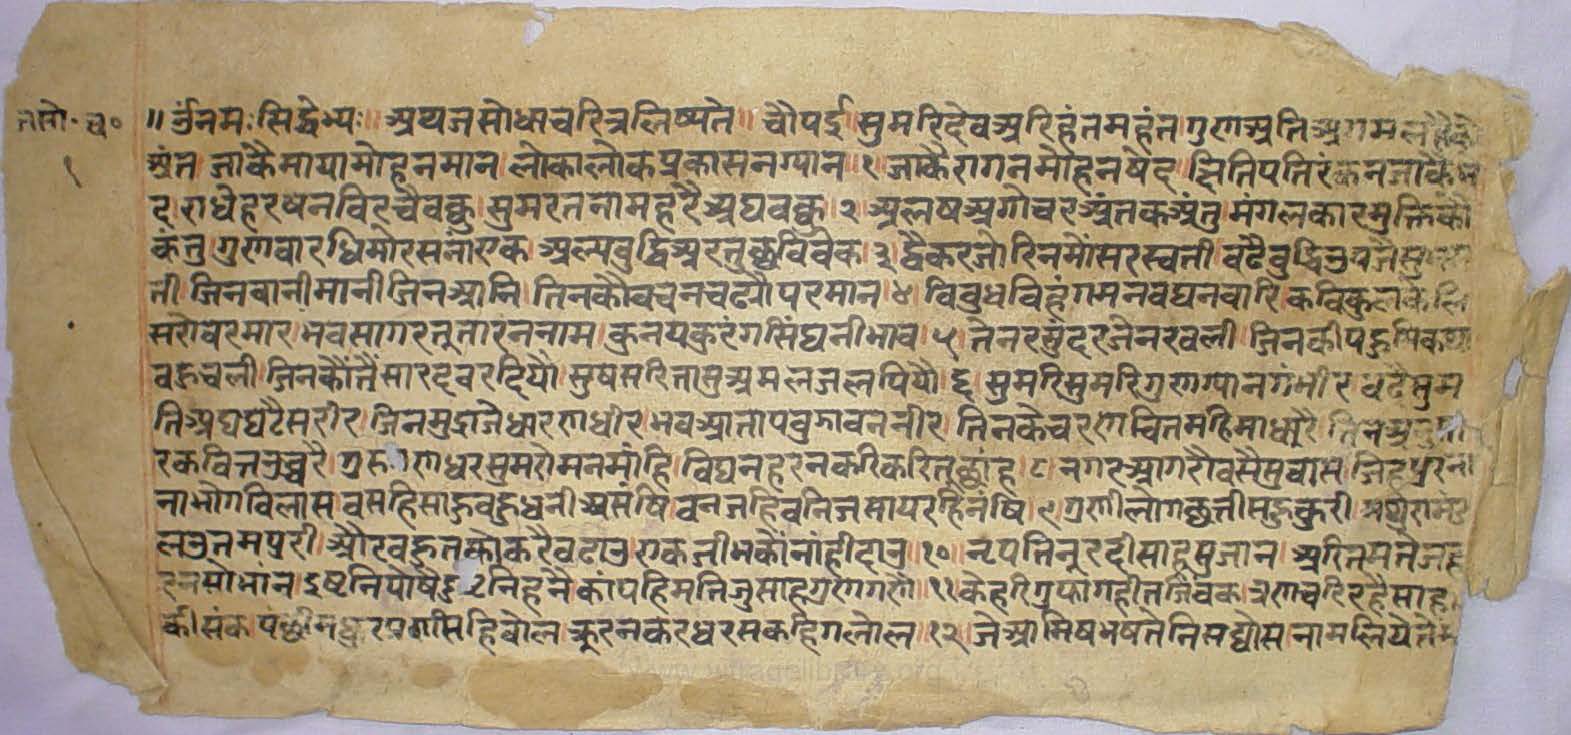 जसो॰ च॰
१
॥ ॐनमः सिद्धेभ्यः॥ अथजसोधरचरित्रलिष्यते॥ चौपई सुमरिदेवअरिहंतमहंत गुणअतिअगमलहै
अंत जाकैमायामोहनमान लोकालोकप्रकासनग्यान॥१ जाकैरागनमोहनषेद छितिपतिरंकनजाकै
द राधेहरषनविरचैवक्र सुमरतनामहरैअघवक्र २ अलषअगोचरअंतकअंतु मंगलकारमुक्तिकौ
कंतु गुणवारधिमोरसनांएक अल्पबुद्धिअरतुछविवेक ३ द्वैकरजोरिनमोंसरस्वती वढैबुद्धिउपजै
ती जिनबानीमानीजिनआनि तिनकौवचनचढ्यौपरमान ४ विबुधविहंगमनवघनवारि कविकुलकेलि
सरोवरमार भवसागरनूतारनन्नाम कुनयकुरंगसिंघनीभाव ५ तेनरसुंदरजेनरवली जिनकी
वहुचली जिनकौंतैंसारदवरदियौ सुषसरितासुअमलजलपियौ ६ सुमरिसुमरिगुणग्यानगंभीर वढैसुम
तिअघघटैसरीर जिनमुद्राजेधारणधीर भवआतापबुझावननीर तिनकेचरणचितमहिमाधरै तिन
रकवित्तउच्चरै गणधरसुमरौंमनमांहि विघनहरनकरिकरितूछांह ८ नगरआगरौवसैसुवास जिहपुरनां
नाभोगविलास वसहिसाहुवहुधनीअसंषि वनजहिवनिजसायरहिनंषि ९ गुणीलोगछत्तीसहुकुरी
लउतमपुरी औरवहुतकोकरैवढाउ एकजीभकौंनांहीदाउ॥१० नृपतिनूरदीसाहसुजान अरितमतेज
हरनसोभांन दुष्टनिहनै कांपहिमतिजुसाहगुणगणे॥११ केहरिगुफागहीतजिवंक हैसाह
कीसंक पंछी सहिवोल कूरनकरधरसकहिगलोल॥१२ जेआमिषभषतेनिसद्यौस नामलियेते
www.vitragelibrary.org